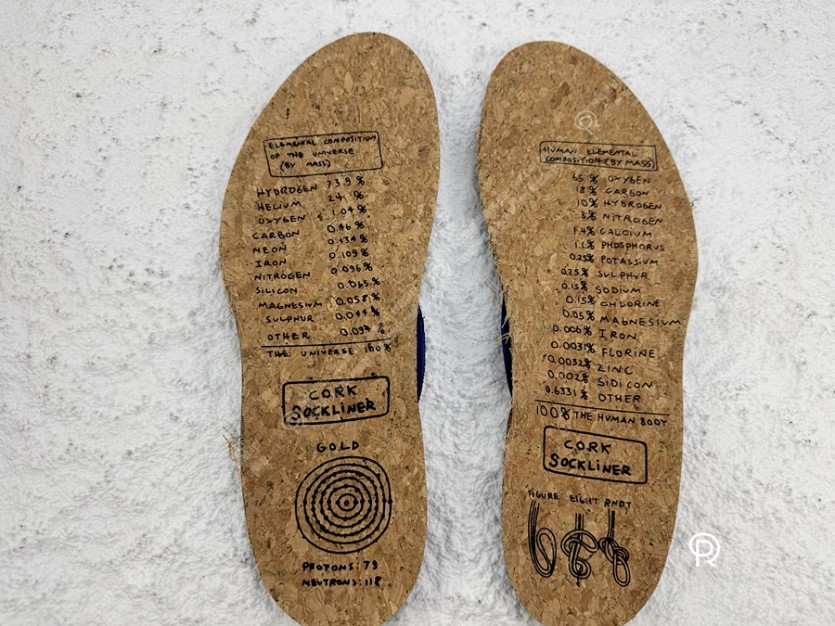 ELEMENTAL COMPOSITION
OF THE UNIVERSE
(BY MASS)
HYDROGEN 73.9%
HELIUM 24%
OXYGEN 1.04%
CARBON 0.46%
NEON 0.134%
IRON 0.109%
NITROGEN 0.096%
SILICON 0.065%
MAGNESIUM 0.058%
SULPHUR 0.044%
OTHER 0.094%
THE UNIVERSE 100%
CORK
SOCKLINER
GOLD
PROTONS: 79
NEUTRONS: 118
HUMAN ELEMENTAL
COMPOSITION (BY MASS)
65% OXYGEN
18% CARBON
10% HYDROGEN
3% NITROGEN
1.4% CALCIUM
1.1% PHOSPHORUS
0.25% POTASSIUM
0.25% SULPHUR
0.15% SODIUM
0.15% CHLORINE
0.05% MAGNESIUM
0.006% IRON
0.0037% FLORINE
0.0032% ZINC
0.002% SIDICON
0.6331% OTHER
100% THE HUMAN BODY
CORK
SOCKLINER
FIGURE EIGHT KNOT